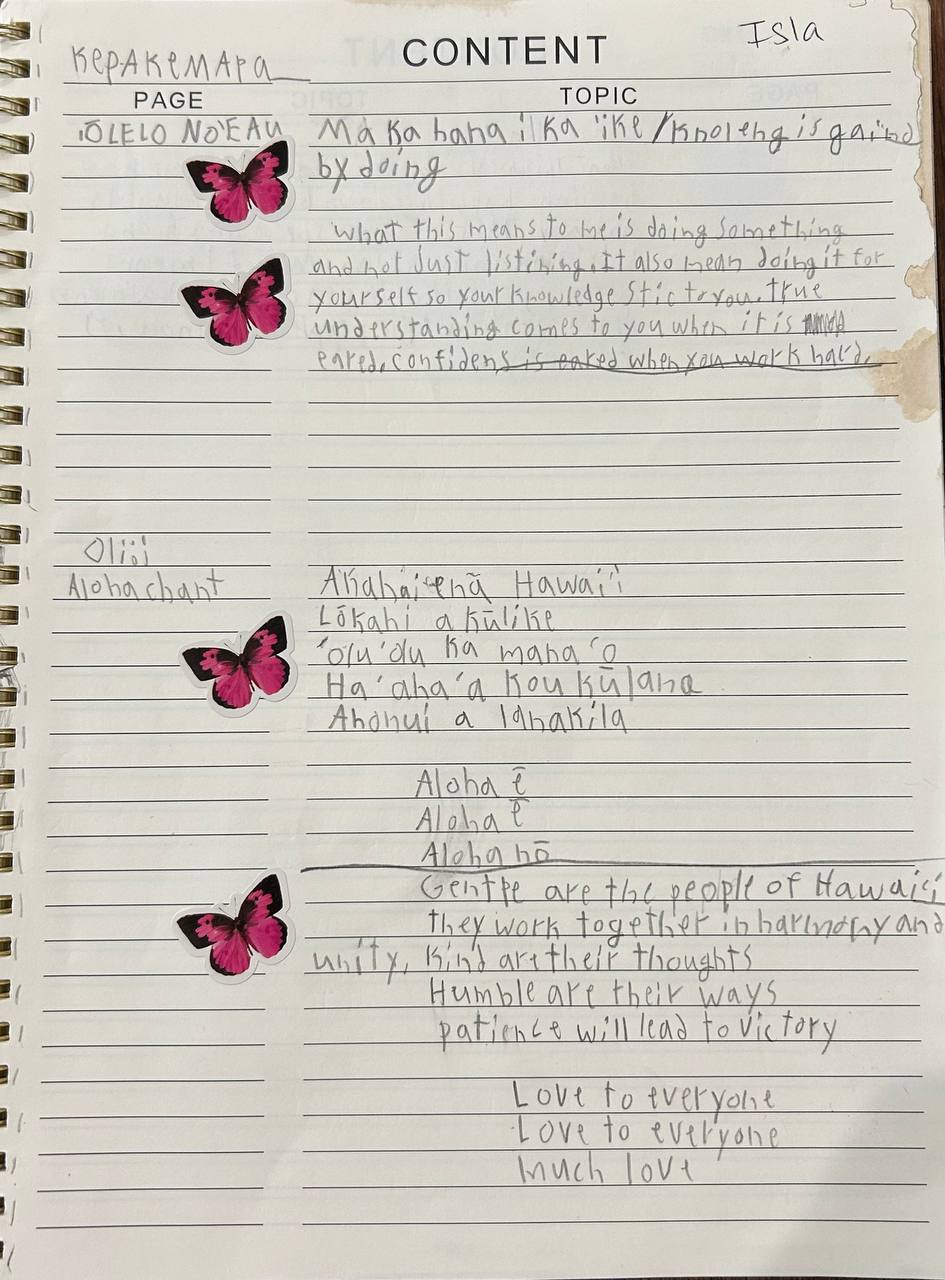 Isla
CONTENT
KepAKemApa
PAGE TOPIC
ʻŌLELO NOʻEAU Ma Ka hana i Ka ʻike / Knoleng is gained
by doing
what this means to me is doing something
and not Just listining. It also mean doing it for
yourself so your knowledge Stic to you. true
understanding comes to you when it is
eared, confidens is eared when you work hard.
Oliii
Aloha chant Akahai e nā Hawaiʻi
Lōkahi a kūlike
ʻoluʻolu ka manaʻo
Haʻahaʻa kou kūlana
Ahonui a lanakila
Aloha ē
Aloha ē
Aloha nō
Gentle are the people of Hawaiʻi
they work together in harmony and
unity, Kind are their thoughts
Humble are their ways
patience will lead to victory
Love to everyone
Love to everyone
much love